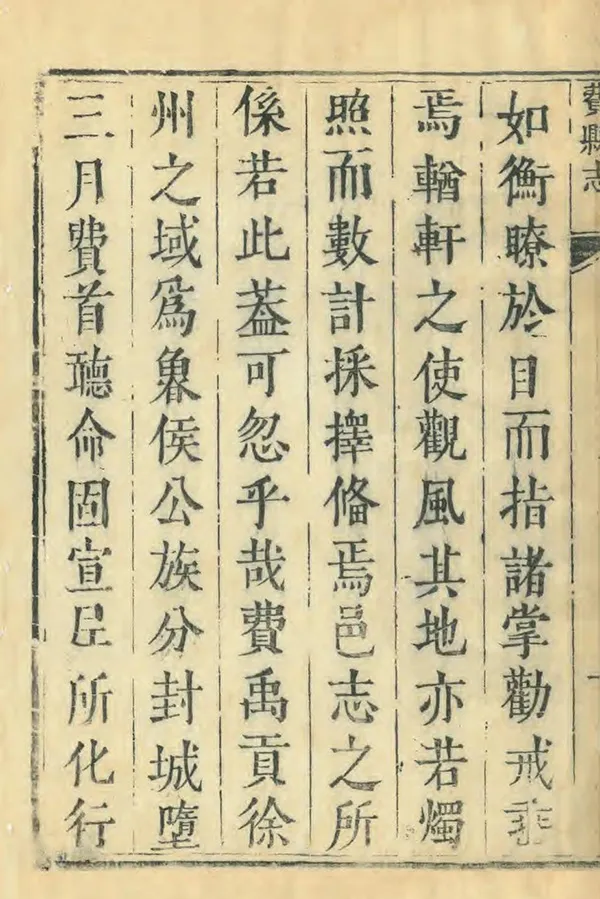 費縣志
如衡瞭於目而指諸掌勸戒
焉輶軒之使觀風其地亦若燭
照而數計採擇偹焉邑志之所
係若此葢可忽乎哉費禹貢徐
州之域爲魯侯公族分封城墮
三月費首聽命固宣所化行